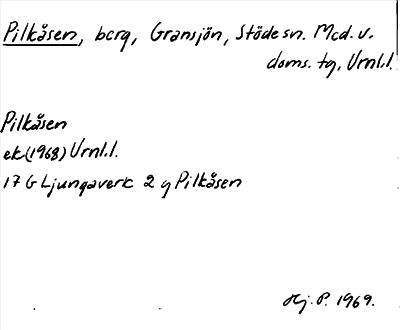 Pilkåsen, berg, Gransjön, Stöde sn. Med. v.
doms. tg, Vrnl.l.
Pilkåsen
ek (1968) Vrnl.l.
17 G Ljungaverk 2 g Pilkåsen
Hj. P. 1969.